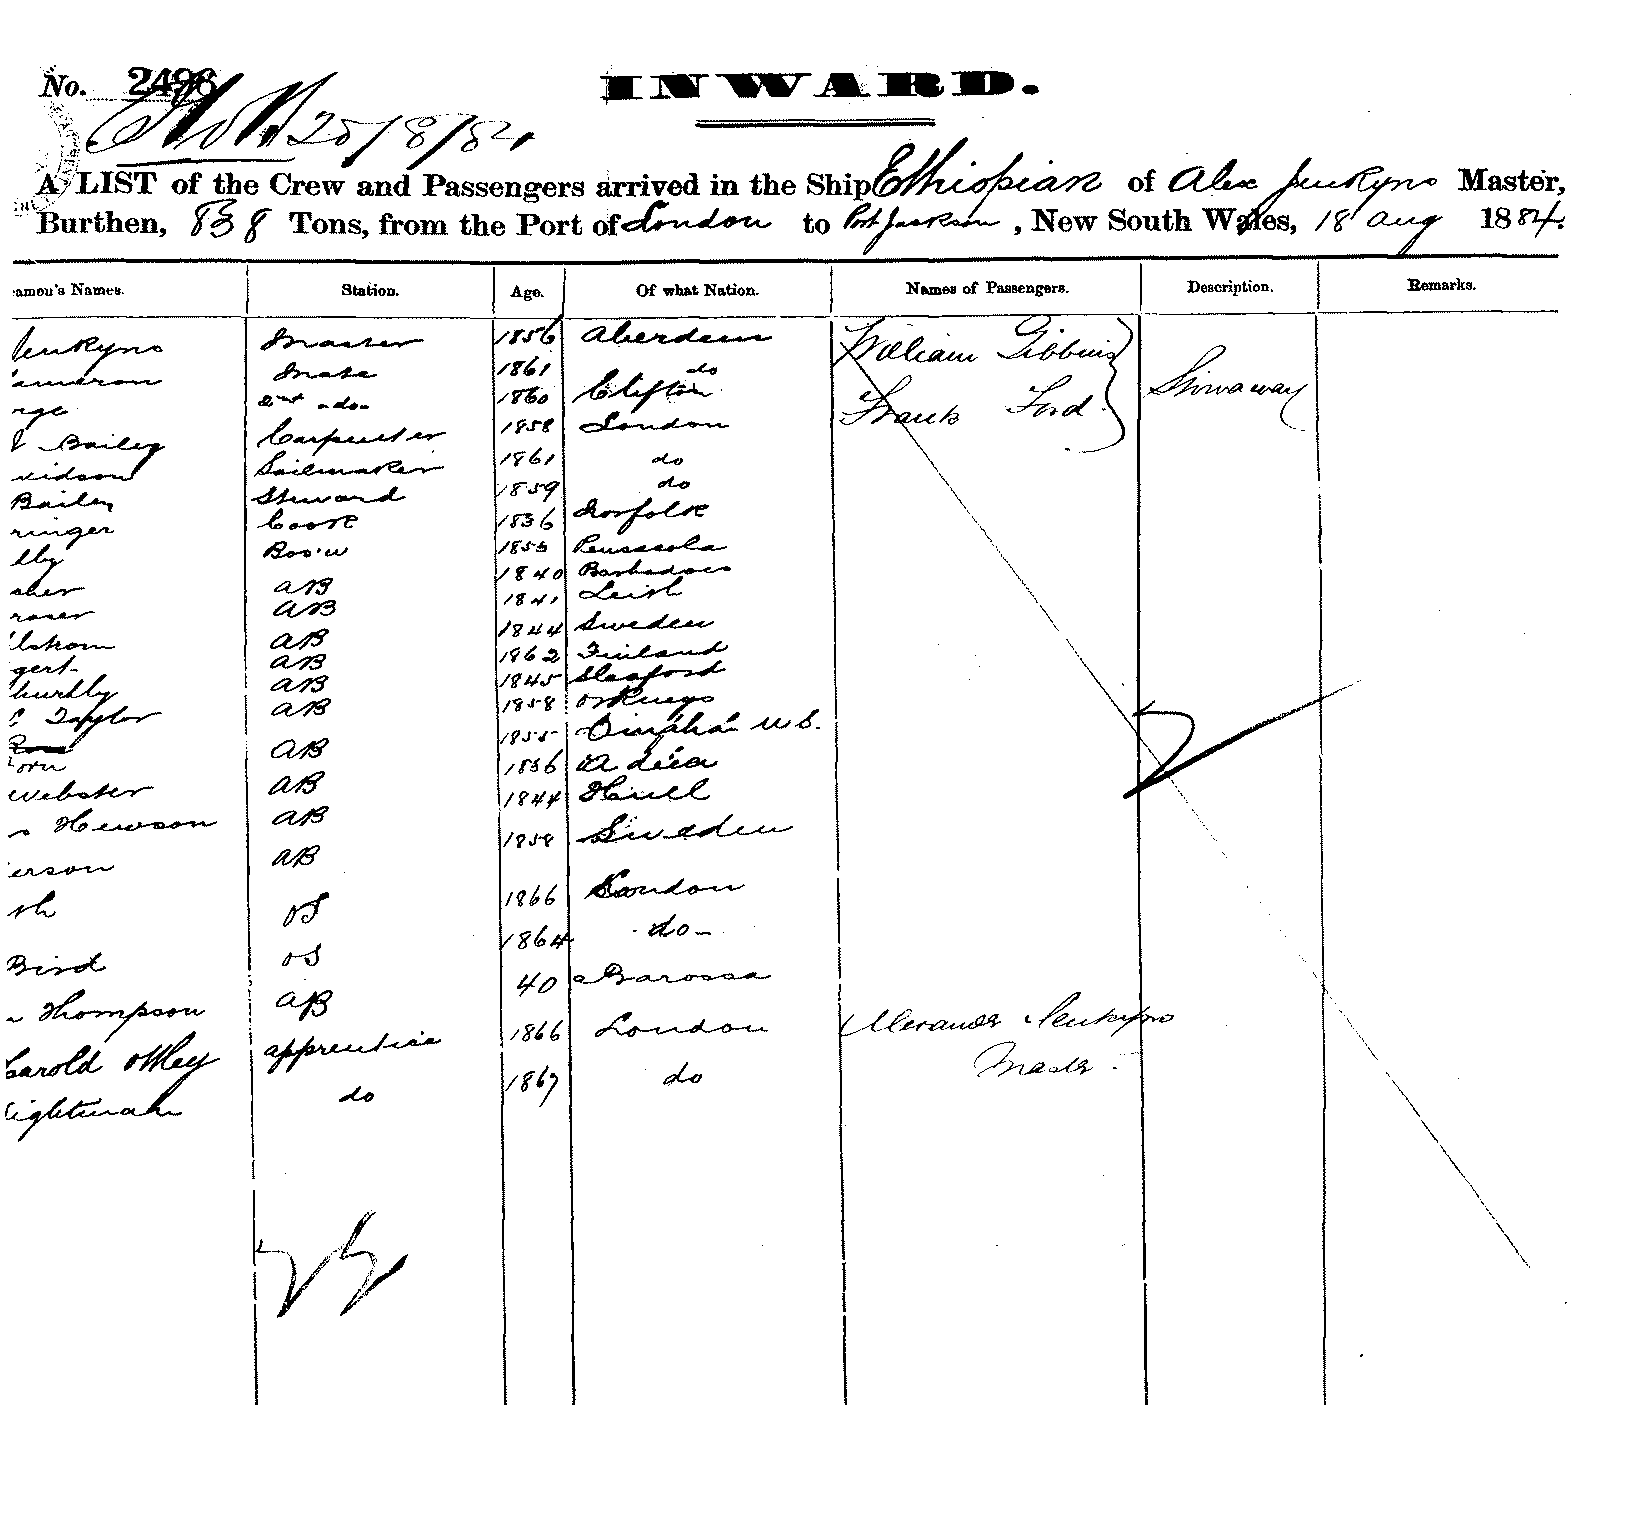 No. 2496
INWARD.
25/8/84
A LIST of the Crew and Passengers arrived in the Ship Ethiopian of Alex Jenkyns Master,
Burthen, 838 Tons, from the Port of London to Port Jackson, New South Wales, 18 Aug 1884.
amen's Names. Station. Age. Of what Nation. Names of Passengers. Description. Remarks.
Jenkyns Master 1856 Aberdeen William Gibbins
ameron Mate 1861 do Stowaway
rge 2nd -do- 1860 Clifton Frank Ford
Bailey Carpenter 1858 London
vidson Sailmaker 1861 do
Bailey Steward 1859 do
ringer Cook 1836 Norfolk
lly Bos'n 1853 Pensacola
sher AB 1840 Barbadoes
raser AB 1841 Leith
lstrom AB 1844 Sweden
gert AB 1862 Finland
AB 1845 Sleaford
Taylor AB 1858 Orkneys
orn AB 1855 Omaha U.S.
Webster AB 1836
Hewson AB 1844 Hull
erson AB 1858 Sweden
sh OS 1866 London
Bird OS 1864 do-
Thompson AB 40 Barossa
Harold Ottley apprentice 1866 London Alexander Jenkyns
ightman do 1867 do Master